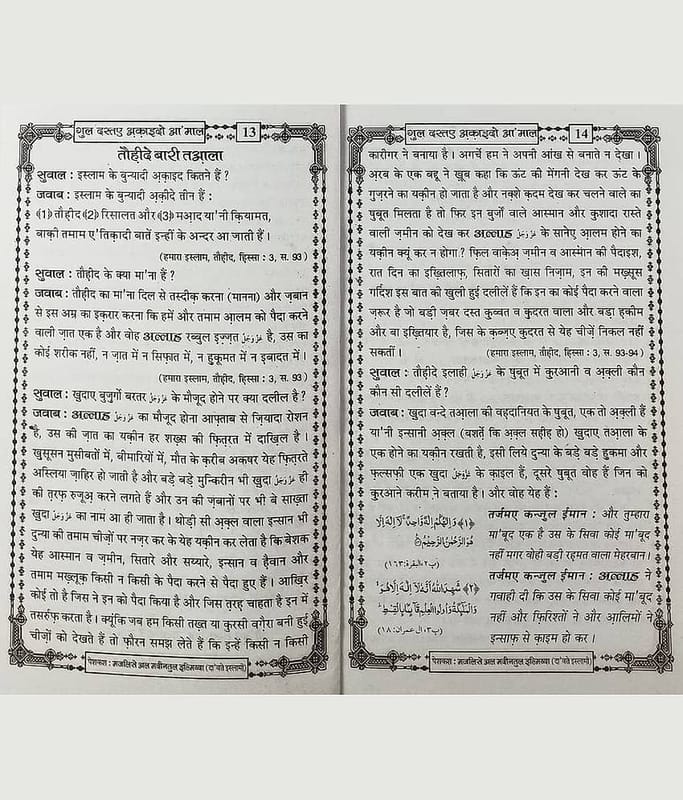 गुल दस्तए अ़क़ाइदो आ'माल
13
तौहीदे बारी तआ़ला
सुवाल : इस्लाम के बुन्यादी अ़क़ाइद कितने हैं ?
जवाब : इस्लाम के बुन्यादी अ़क़ीदे तीन हैं :
﴾1﴿ तौहीद ﴾2﴿ रिसालत और ﴾3﴿ मआ़द या'नी क़ियामत,
बाक़ी तमाम ए'तिक़ादी बातें इन्हीं के अन्दर आ जाती हैं ।
(हमारा इस्लाम, तौहीद, हिस्सा : 3, स. 93)
सुवाल : तौहीद के क्या मा'ना हैं ?
जवाब : तौहीद का मा'ना दिल से तस्दीक़ करना (मानना) और ज़बान
से इस अम्र का इक़रार करना कि हमें और तमाम आ़लम को पैदा करने
वाली ज़ात एक है और वोह अल्लाह عَزَّوَجَلَّ रब्बुल इ़ज़्ज़त है, उस का
कोई शरीक नहीं, न ज़ात में न सिफ़ात में, न हुकूमत में न इ़बादत में ।
(हमारा इस्लाम, तौहीद, हिस्सा : 3, स. 93)
सुवाल : खुदाए बुज़ुर्गो बरतर عَزَّوَجَلَّ के मौजूद होने पर क्या दलील है ?
जवाब : अल्लाह عَزَّوَجَلَّ का मौजूद होना आफ़्ताब से ज़ियादा रोशन
है, उस की ज़ात का यक़ीन हर शख़्स की फ़ित़रत में दाख़िल है ।
ख़ुसूसन मुसीबतों में, बीमारियों में, मौत के क़रीब अक्सर येह फ़ित़रते
अस्लिया ज़ाहिर हो जाती है और बड़े बड़े मुन्किरीन भी खुदा عَزَّوَجَلَّ ही
की त़रफ़ रुजूअ़ करने लगते हैं और उन की ज़बानों पर भी बे साख़्ता
खुदा عَزَّوَجَلَّ का नाम आ ही जाता है । थोड़ी सी अ़क़्ल वाला इन्सान भी
दुन्या की तमाम चीज़ों पर नज़र कर के येह यक़ीन कर लेता है कि बेशक
येह आस्मान व ज़मीन, सितारे और सय्यारे, इन्सान व हैवान और
तमाम मख़्लूक़ किसी न किसी के पैदा करने से पैदा हुए हैं । आख़िर
कोई तो है जिस ने इन को पैदा किया है और जिस त़रह़ चाहता है इन में
तसर्रुफ़ करता है । क्यूंकि जब हम किसी तख़्त या कुरसी वग़ैरा बनी हुई
चीज़ों को देखते हैं तो फ़ौरन समझ लेते हैं कि इन्हें किसी न किसी
पेशकश : मजलिसे अल मदीनतुल इ़ल्मिय्या (दा'वते इस्लामी)
गुल दस्तए अ़क़ाइदो आ'माल
14
कारीगर ने बनाया है । अगर्चे हम ने अपनी आंख से बनाते न देखा ।
अ़रब के एक बद्दू ने ख़ूब कहा कि ऊंट की मेंगनी देख कर ऊंट के
गुज़रने का यक़ीन हो जाता है और नक़्शे क़दम देख कर चलने वाले का
सुबूत मिलता है तो फिर इन बुर्जों वाले आस्मान और कुशादा रास्ते
वाली ज़मीन को देख कर अल्लाह عَزَّوَجَلَّ के सानेए़ आ़लम होने का
यक़ीन क्यूं कर न होगा ? फ़िल वाक़ेअ़ ज़मीन व आस्मान की पैदाइश,
रात दिन का इख़्तिलाफ़, सितारों का ख़ास निज़ाम, इन की मख़्सूस
गर्दिश इस बात की खुली हुई दलीलें हैं कि इन का कोई पैदा करने वाला
ज़रूर है जो बड़ी ज़बर दस्त क़ुव्वत व क़ुदरत वाला और बड़ा ह़कीम
और बा इख़्तियार है, जिस के क़ब्ज़ए क़ुदरत से येह चीज़ें निकल नहीं
सकतीं ।
(हमारा इस्लाम, तौहीद, हिस्सा : 3, स. 93-94)
सुवाल : तौहीदे इलाही عَزَّوَجَلَّ के सुबूत में क़ुरआनी व अ़क़्ली कौन
कौन सी दलीलें हैं ?
जवाब : खुदा वन्दे तआ़ला की वह़दानियत के सुबूत, एक तो अ़क़्ली हैं
या'नी इन्सानी अ़क़्ल (बशर्ते कि अ़क़्ल सह़ीह़ हो) खुदाए तआ़ला के
एक होने का यक़ीन रखती है, इसी लिये दुन्या के बड़े बड़े हुकमा और
फ़ल्सफ़ी एक खुदा عَزَّوَجَلَّ के क़ाइल हैं, दूसरे सुबूत वोह हैं जिन को
क़ुरआने करीम ने बताया है । और वोह येह हैं :
﴿١﴾ وَاِلٰهُكُمْ اِلٰهٌ وَّاحِدٌ ۚ لَاۤ اِلٰهَ اِلَّا
هُوَ الرَّحْمٰنُ الرَّحِيْمُ
(پ٢، البقرة: ١٦٣)
तर्जमए कन्ज़ुल ईमान : और तुम्हारा
मा'बूद एक है उस के सिवा कोई मा'बूद
नहीं मगर वोही बड़ी रह़मत वाला मेहरबान ।
﴿٢﴾ شَهِدَ اللّٰهُ اَنَّهٗ لَاۤ اِلٰهَ اِلَّا هُوَ ۙ
وَالْمَلٰٓئِكَةُ وَاُولُوا الْعِلْمِ قَآىِٕمًۢا بِالْقِسْطِ ؕ
(پ٣، اٰل عمران: ١٨)
तर्जमए कन्ज़ुल ईमान : अल्लाह ने
गवाही दी कि उस के सिवा कोई मा'बूद
नहीं और फ़िरिश्तों ने और आ़लिमों ने
इन्साफ़ से क़ाइम हो कर ।
पेशकश : मजलिसे अल मदीनतुल इ़ल्मिय्या (दा'वते इस्लामी)